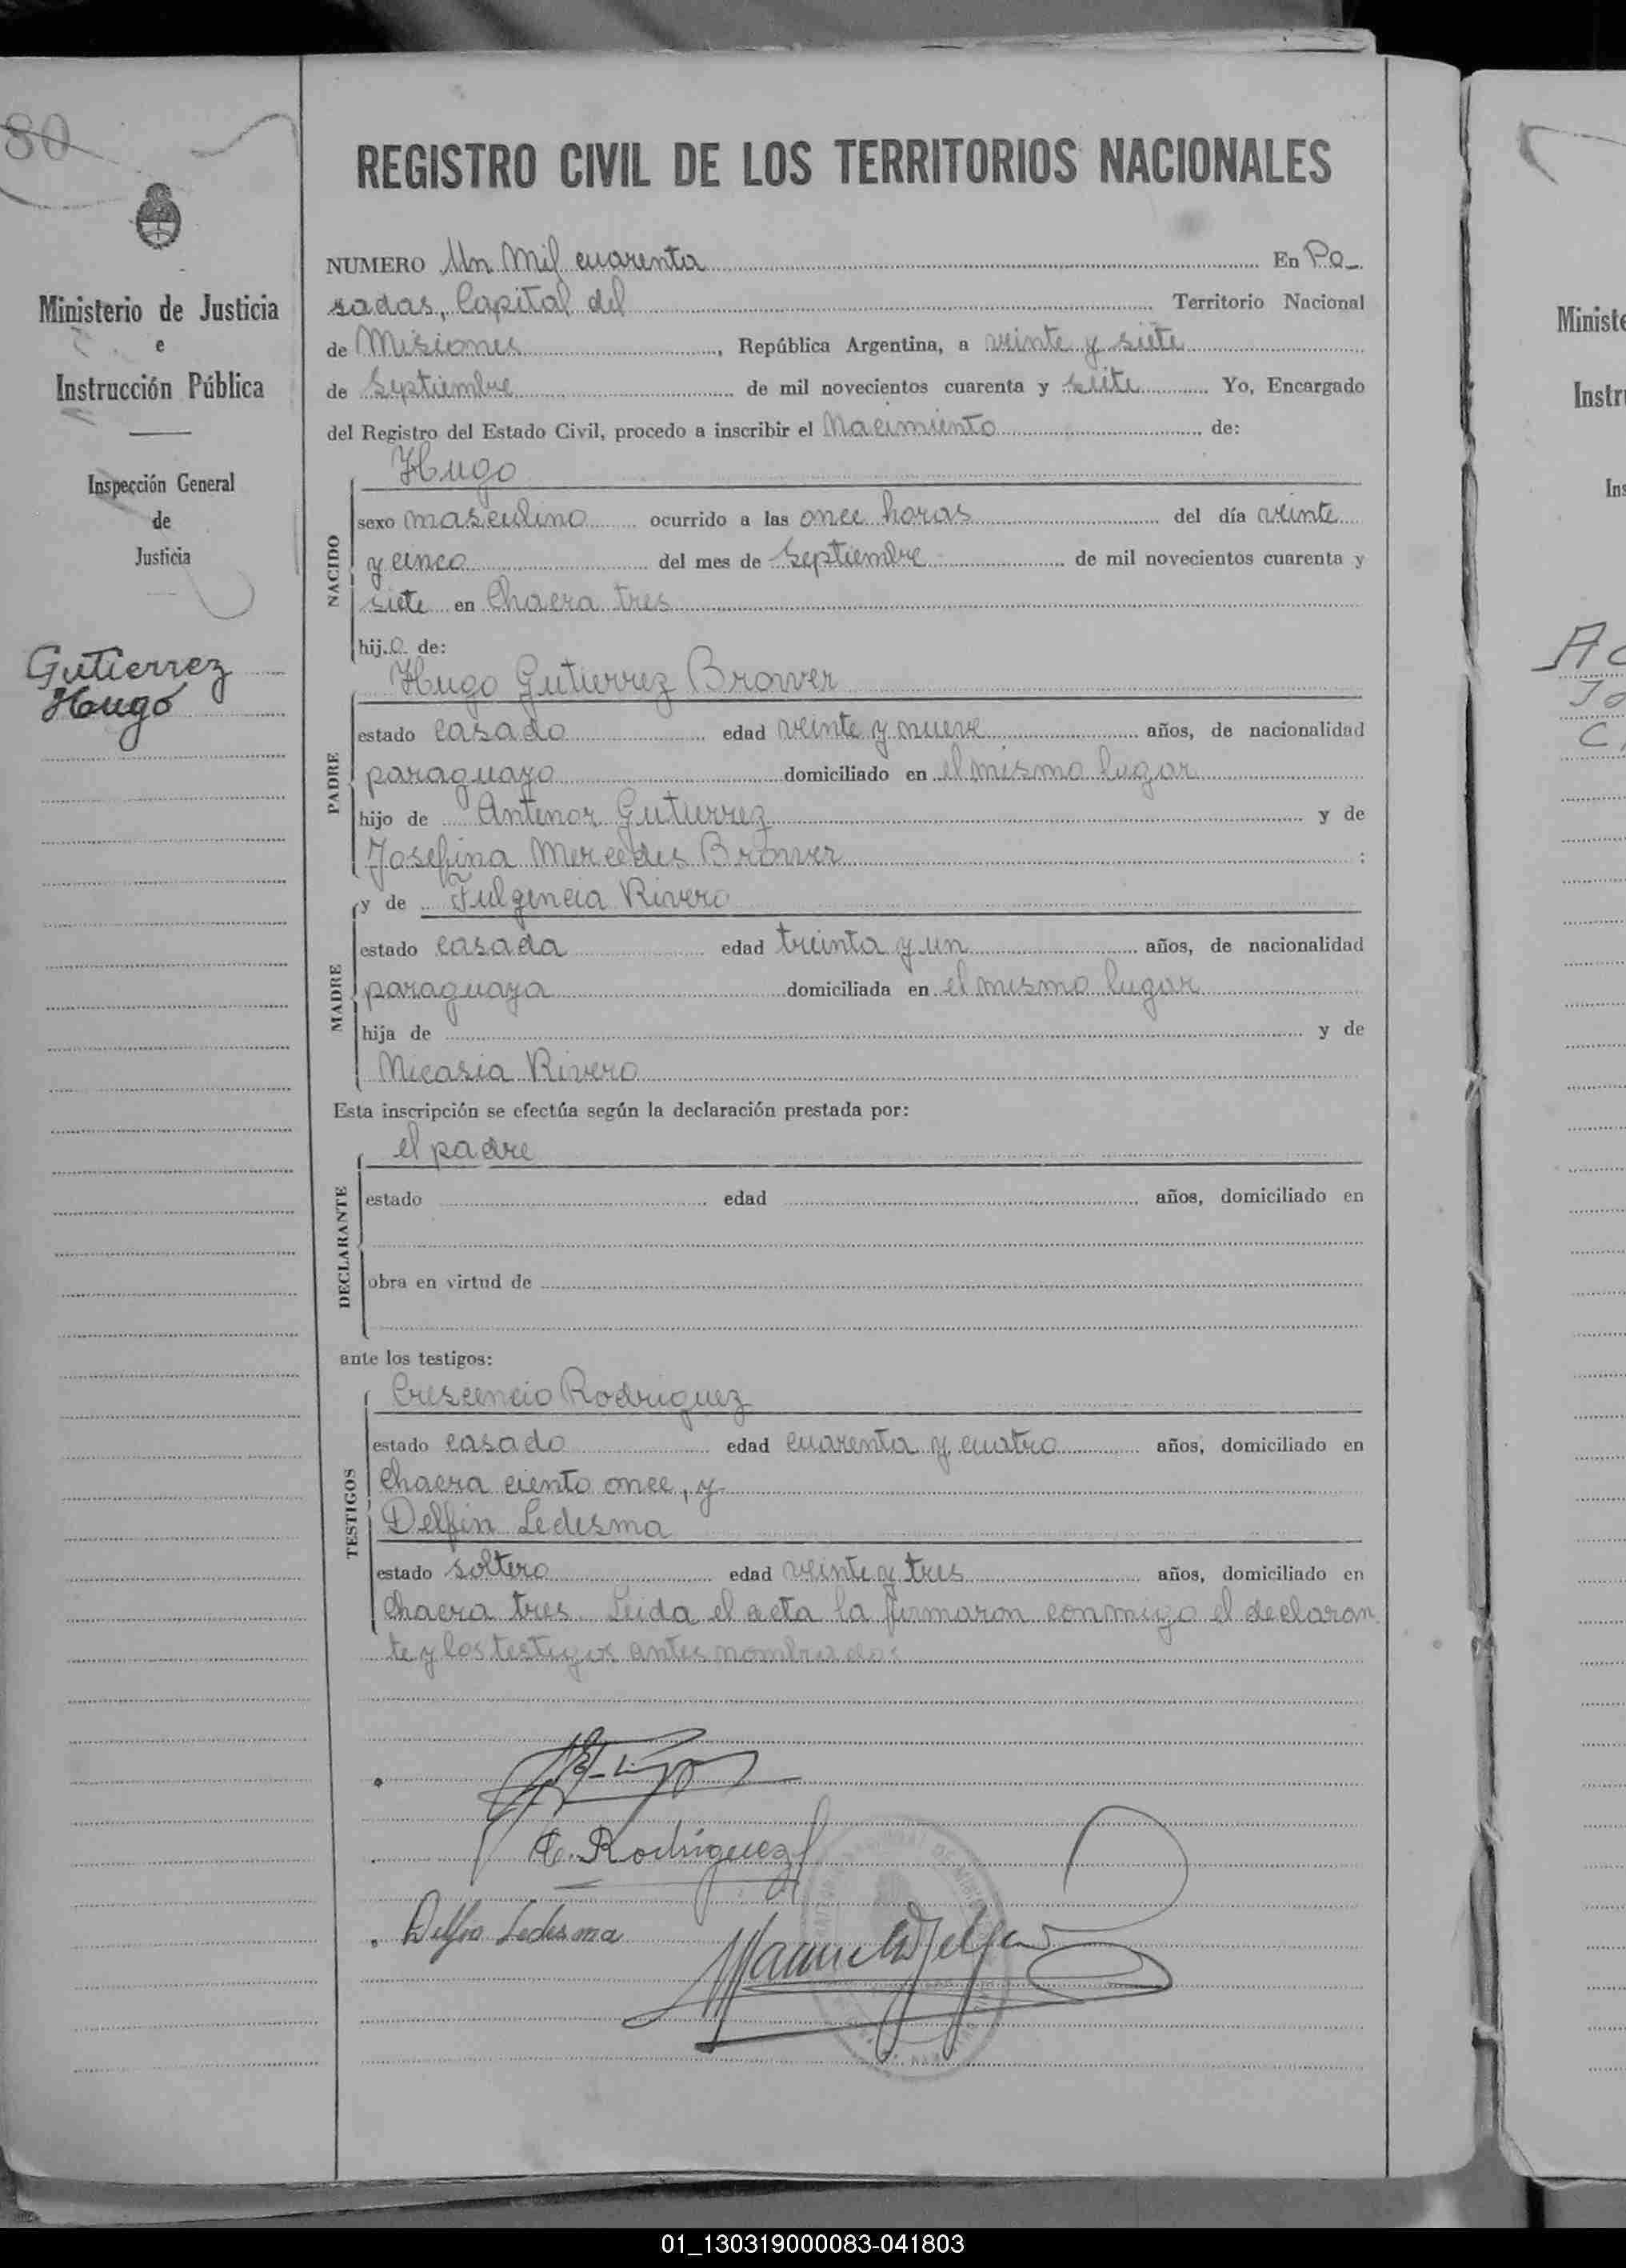 80
Ministerio de Justicia
e
Instrucción Pública
Inspección General
de
Justicia
Gutierrez
Hugo
REGISTRO CIVIL DE LOS TERRITORIOS NACIONALES
NUMERO Un Mil cuarenta En Po_
sadas, Capital del Territorio Nacional
de Misiones, República Argentina, a veinte y siete
de Septiembre de mil novecientos cuarenta y siete Yo, Encargado
del Registro del Estado Civil, procedo a inscribir el Nacimiento de:
NACIDO
Hugo
sexo masculino ocurrido a las once horas del día veinte
y cinco del mes de Septiembre de mil novecientos cuarenta y
siete en Chacra tres
hijo de:
PADRE
Hugo Gutierrez Brower
estado casado edad veinte y nueve años, de nacionalidad
paraguayo domiciliado en el mismo lugar
hijo de Antenor Gutierrez y de
Josefina Mercedes Brower :
MADRE
y de Fulgencia Rivero
estado casada edad treinta y un años, de nacionalidad
paraguaya domiciliada en el mismo lugar
hija de y de
Nicasia Rivero
Esta inscripción se efectúa según la declaración prestada por:
DECLARANTE
el padre
estado edad años, domiciliado en
obra en virtud de
ante los testigos:
TESTIGOS
Crescencio Rodriguez
estado casado edad cuarenta y cuatro años, domiciliado en
Chacra ciento once, y
Delfin Ledesma
estado soltero edad veinte y tres años, domiciliado en
Chacra tres. Leida el acta la firmaron conmigo el declaran
te y los testigos antes nombrados
C. Rodríguez
Delfin Ledesma
Ministe
Instr
Ins
01_130319000083-041803